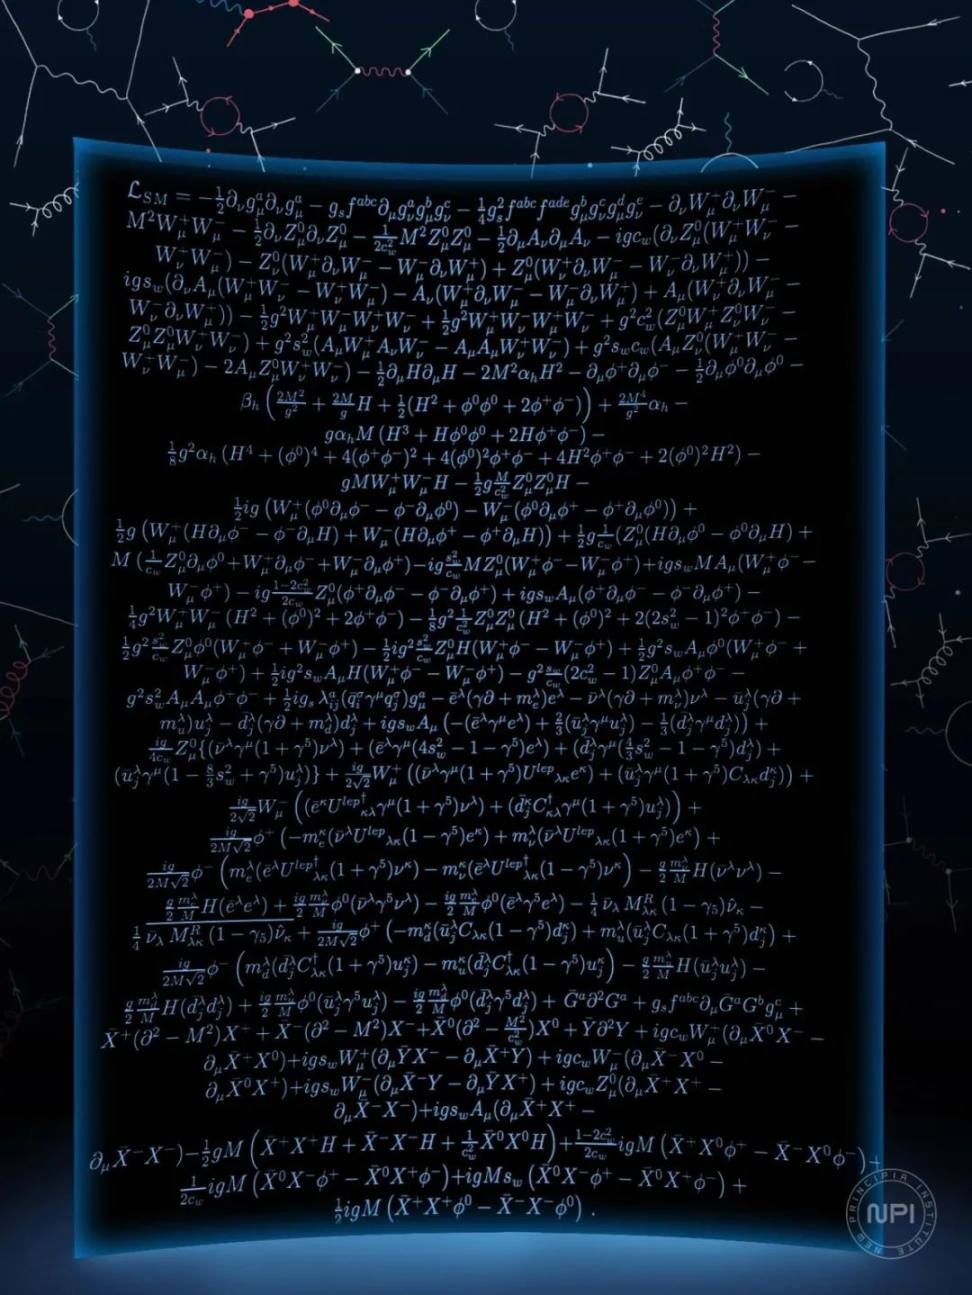 \mathcal{L}_{SM} = -\frac{1}{2}\partial_\nu g^a_\mu \partial_\nu g^a_\mu - g_s f^{abc}\partial_\mu g^a_\nu g^b_\mu g^c_\nu - \frac{1}{4}g^2_s f^{abc}f^{ade}g^b_\mu g^c_\nu g^d_\mu g^e_\nu - \partial_\nu W^+_\mu \partial_\nu W^-_\mu -
M^2 W^+_\mu W^-_\mu - \frac{1}{2}\partial_\nu Z^0_\mu \partial_\nu Z^0_\mu - \frac{1}{2c^2_w}M^2 Z^0_\mu Z^0_\mu - \frac{1}{2}\partial_\mu A_\nu \partial_\mu A_\nu - igc_w(\partial_\nu Z^0_\mu(W^+_\mu W^-_\nu -
W^+_\nu W^-_\mu) - Z^0_\nu(W^+_\mu \partial_\nu W^-_\mu - W^-_\mu \partial_\nu W^+_\mu) + Z^0_\mu(W^+_\nu \partial_\nu W^-_\mu - W^-_\nu \partial_\nu W^+_\mu)) -
igs_w(\partial_\nu A_\mu(W^+_\mu W^-_\nu - W^+_\nu W^-_\mu) - A_\nu(W^+_\mu \partial_\nu W^-_\mu - W^-_\mu \partial_\nu W^+_\mu) + A_\mu(W^+_\nu \partial_\nu W^-_\mu -
W^-_\nu \partial_\nu W^+_\mu)) - \frac{1}{2}g^2 W^+_\mu W^-_\mu W^+_\nu W^-_\nu + \frac{1}{2}g^2 W^+_\mu W^-_\nu W^+_\mu W^-_\nu + g^2 c^2_w(Z^0_\mu W^+_\mu Z^0_\nu W^-_\nu -
Z^0_\mu Z^0_\mu W^+_\nu W^-_\nu) + g^2 s^2_w(A_\mu W^+_\mu A_\nu W^-_\nu - A_\mu A_\mu W^+_\nu W^-_\nu) + g^2 s_w c_w(A_\mu Z^0_\nu(W^+_\mu W^-_\nu -
W^+_\nu W^-_\mu) - 2A_\mu Z^0_\mu W^+_\nu W^-_\nu) - \frac{1}{2}\partial_\mu H \partial_\mu H - 2M^2 \alpha_h H^2 - \partial_\mu \phi^+ \partial_\mu \phi^- - \frac{1}{2}\partial_\mu \phi^0 \partial_\mu \phi^0 -
\beta_h \left( \frac{2M^2}{g^2} + \frac{2M}{g}H + \frac{1}{2}(H^2 + \phi^0 \phi^0 + 2\phi^+ \phi^-) \right) + \frac{2M^4}{g^2}\alpha_h -
g\alpha_h M (H^3 + H\phi^0 \phi^0 + 2H\phi^+ \phi^-) -
\frac{1}{8}g^2 \alpha_h (H^4 + (\phi^0)^4 + 4(\phi^+ \phi^-)^2 + 4(\phi^0)^2 \phi^+ \phi^- + 4H^2 \phi^+ \phi^- + 2(\phi^0)^2 H^2) -
gM W^+_\mu W^-_\mu H - \frac{1}{2}g\frac{M}{c^2_w}Z^0_\mu Z^0_\mu H -
\frac{1}{2}ig (W^+_\mu(\phi^0 \partial_\mu \phi^- - \phi^- \partial_\mu \phi^0) - W^-_\mu(\phi^0 \partial_\mu \phi^+ - \phi^+ \partial_\mu \phi^0)) +
\frac{1}{2}g (W^+_\mu(H\partial_\mu \phi^- - \phi^- \partial_\mu H) + W^-_\mu(H\partial_\mu \phi^+ - \phi^+ \partial_\mu H)) + \frac{1}{2}g\frac{1}{c_w}(Z^0_\mu(H\partial_\mu \phi^0 - \phi^0 \partial_\mu H) +
M (\frac{1}{c_w}Z^0_\mu \partial_\mu \phi^0 + W^+_\mu \partial_\mu \phi^- + W^-_\mu \partial_\mu \phi^+) - ig\frac{s^2_w}{c_w}M Z^0_\mu(W^+_\mu \phi^- - W^-_\mu \phi^+) + igs_w M A_\mu(W^+_\mu \phi^- -
W^-_\mu \phi^+) - ig\frac{1-2c^2_w}{2c_w}Z^0_\mu(\phi^+ \partial_\mu \phi^- - \phi^- \partial_\mu \phi^+) + igs_w A_\mu(\phi^+ \partial_\mu \phi^- - \phi^- \partial_\mu \phi^+) -
\frac{1}{4}g^2 W^+_\mu W^-_\mu (H^2 + (\phi^0)^2 + 2\phi^+ \phi^-) - \frac{1}{8}g^2 \frac{1}{c^2_w}Z^0_\mu Z^0_\mu (H^2 + (\phi^0)^2 + 2(2s^2_w - 1)^2 \phi^+ \phi^-) -
\frac{1}{2}g^2 \frac{s^2_w}{c_w}Z^0_\mu \phi^0(W^+_\mu \phi^- + W^-_\mu \phi^+) - \frac{1}{2}ig^2 \frac{s^2_w}{c_w}Z^0_\mu H(W^+_\mu \phi^- - W^-_\mu \phi^+) + \frac{1}{2}g^2 s_w A_\mu \phi^0(W^+_\mu \phi^- +
W^-_\mu \phi^+) + \frac{1}{2}ig^2 s_w A_\mu H(W^+_\mu \phi^- - W^-_\mu \phi^+) - g^2 \frac{s_w}{c_w}(2c^2_w - 1)Z^0_\mu A_\mu \phi^+ \phi^- -
g^2 s^2_w A_\mu A_\mu \phi^+ \phi^- + \frac{1}{2}ig_s \lambda^a_{ij}(\bar{q}^\sigma_i \gamma^\mu q^\sigma_j)g^a_\mu - \bar{e}^\lambda(\gamma\partial + m^\lambda_e)e^\lambda - \bar{\nu}^\lambda(\gamma\partial + m^\lambda_\nu)\nu^\lambda - \bar{u}^\lambda_j(\gamma\partial +
m^\lambda_u)u^\lambda_j - \bar{d}^\lambda_j(\gamma\partial + m^\lambda_d)d^\lambda_j + igs_w A_\mu (-(\bar{e}^\lambda \gamma^\mu e^\lambda) + \frac{2}{3}(\bar{u}^\lambda_j \gamma^\mu u^\lambda_j) - \frac{1}{3}(\bar{d}^\lambda_j \gamma^\mu d^\lambda_j)) +
\frac{ig}{4c_w}Z^0_\mu \{(\bar{\nu}^\lambda \gamma^\mu(1 + \gamma^5)\nu^\lambda) + (\bar{e}^\lambda \gamma^\mu(4s^2_w - 1 - \gamma^5)e^\lambda) + (\bar{d}^\lambda_j \gamma^\mu(\frac{4}{3}s^2_w - 1 - \gamma^5)d^\lambda_j) +
(\bar{u}^\lambda_j \gamma^\mu(1 - \frac{8}{3}s^2_w + \gamma^5)u^\lambda_j)\} + \frac{ig}{2\sqrt{2}}W^+_\mu ((\bar{\nu}^\lambda \gamma^\mu(1 + \gamma^5)U^{lep}{}_{\lambda\kappa}e^\kappa) + (\bar{u}^\lambda_j \gamma^\mu(1 + \gamma^5)C_{\lambda\kappa}d^\kappa_j)) +
\frac{ig}{2\sqrt{2}}W^-_\mu \left( (\bar{e}^\kappa U^{lep\dagger}{}_{\kappa\lambda}\gamma^\mu(1 + \gamma^5)\nu^\lambda) + (\bar{d}^\kappa_j C^\dagger_{\kappa\lambda}\gamma^\mu(1 + \gamma^5)u^\lambda_j) \right) +
\frac{ig}{2M\sqrt{2}}\phi^+ (-m^\kappa_e(\bar{\nu}^\lambda U^{lep}{}_{\lambda\kappa}(1 - \gamma^5)e^\kappa) + m^\lambda_\nu(\bar{\nu}^\lambda U^{lep}{}_{\lambda\kappa}(1 + \gamma^5)e^\kappa) +
\frac{ig}{2M\sqrt{2}}\phi^- \left( m^\lambda_e(\bar{e}^\lambda U^{lep\dagger}{}_{\lambda\kappa}(1 + \gamma^5)\nu^\kappa) - m^\kappa_\nu(\bar{e}^\lambda U^{lep\dagger}{}_{\lambda\kappa}(1 - \gamma^5)\nu^\kappa \right) - \frac{g}{2}\frac{m^\lambda_\nu}{M}H(\bar{\nu}^\lambda \nu^\lambda) -
\frac{g}{2}\frac{m^\lambda_e}{M}H(\bar{e}^\lambda e^\lambda) + \frac{ig}{2}\frac{m^\lambda_\nu}{M}\phi^0(\bar{\nu}^\lambda \gamma^5 \nu^\lambda) - \frac{ig}{2}\frac{m^\lambda_e}{M}\phi^0(\bar{e}^\lambda \gamma^5 e^\lambda) - \frac{1}{4}\bar{\nu}_\lambda M^R_{\lambda\kappa}(1 - \gamma_5)\hat{\nu}_\kappa -
\frac{1}{4}\overline{\bar{\nu}_\lambda M^R_{\lambda\kappa}(1 - \gamma_5)\hat{\nu}_\kappa} + \frac{ig}{2M\sqrt{2}}\phi^+ (-m^\kappa_d(\bar{u}^\lambda_j C_{\lambda\kappa}(1 - \gamma^5)d^\kappa_j) + m^\lambda_u(\bar{u}^\lambda_j C_{\lambda\kappa}(1 + \gamma^5)d^\kappa_j) +
\frac{ig}{2M\sqrt{2}}\phi^- \left( m^\lambda_d(\bar{d}^\lambda_j C^\dagger_{\lambda\kappa}(1 + \gamma^5)u^\kappa_j) - m^\kappa_u(\bar{d}^\lambda_j C^\dagger_{\lambda\kappa}(1 - \gamma^5)u^\kappa_j \right) - \frac{g}{2}\frac{m^\lambda_u}{M}H(\bar{u}^\lambda_j u^\lambda_j) -
\frac{g}{2}\frac{m^\lambda_d}{M}H(\bar{d}^\lambda_j d^\lambda_j) + \frac{ig}{2}\frac{m^\lambda_u}{M}\phi^0(\bar{u}^\lambda_j \gamma^5 u^\lambda_j) - \frac{ig}{2}\frac{m^\lambda_d}{M}\phi^0(\bar{d}^\lambda_j \gamma^5 d^\lambda_j) + \bar{G}^a \partial^2 G^a + g_s f^{abc}\partial_\mu \bar{G}^a G^b g^c_\mu +
\bar{X}^+(\partial^2 - M^2)X^+ + \bar{X}^-(\partial^2 - M^2)X^- + \bar{X}^0(\partial^2 - \frac{M^2}{c^2_w})X^0 + \bar{Y}\partial^2 Y + igc_w W^+_\mu(\partial_\mu \bar{X}^0 X^- -
\partial_\mu \bar{X}^+ X^0) + igs_w W^+_\mu(\partial_\mu \bar{Y}X^- - \partial_\mu \bar{X}^+ Y) + igc_w W^-_\mu(\partial_\mu \bar{X}^- X^0 -
\partial_\mu \bar{X}^0 X^+) + igs_w W^-_\mu(\partial_\mu \bar{X}^- Y - \partial_\mu \bar{Y}X^+) + igc_w Z^0_\mu(\partial_\mu \bar{X}^+ X^+ -
\partial_\mu \bar{X}^- X^-) + igs_w A_\mu(\partial_\mu \bar{X}^+ X^+ -
\partial_\mu \bar{X}^- X^-) - \frac{1}{2}gM \left( \bar{X}^+ X^+ H + \bar{X}^- X^- H + \frac{1}{c^2_w}\bar{X}^0 X^0 H \right) + \frac{1-2c^2_w}{2c_w}igM (\bar{X}^+ X^0 \phi^+ - \bar{X}^- X^0 \phi^-) +
\frac{1}{2c_w}igM (\bar{X}^0 X^- \phi^+ - \bar{X}^0 X^+ \phi^-) + igM s_w (\bar{X}^0 X^- \phi^+ - \bar{X}^0 X^+ \phi^-) +
\frac{1}{2}igM (\bar{X}^+ X^+ \phi^0 - \bar{X}^- X^- \phi^0) .
NEW PRINCIPIA INSTITUTE
NPI